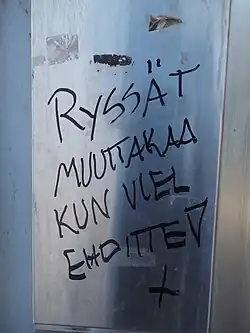 RYSSÄT
MUUTTAKAA
KUN VIEL
EHDITTE